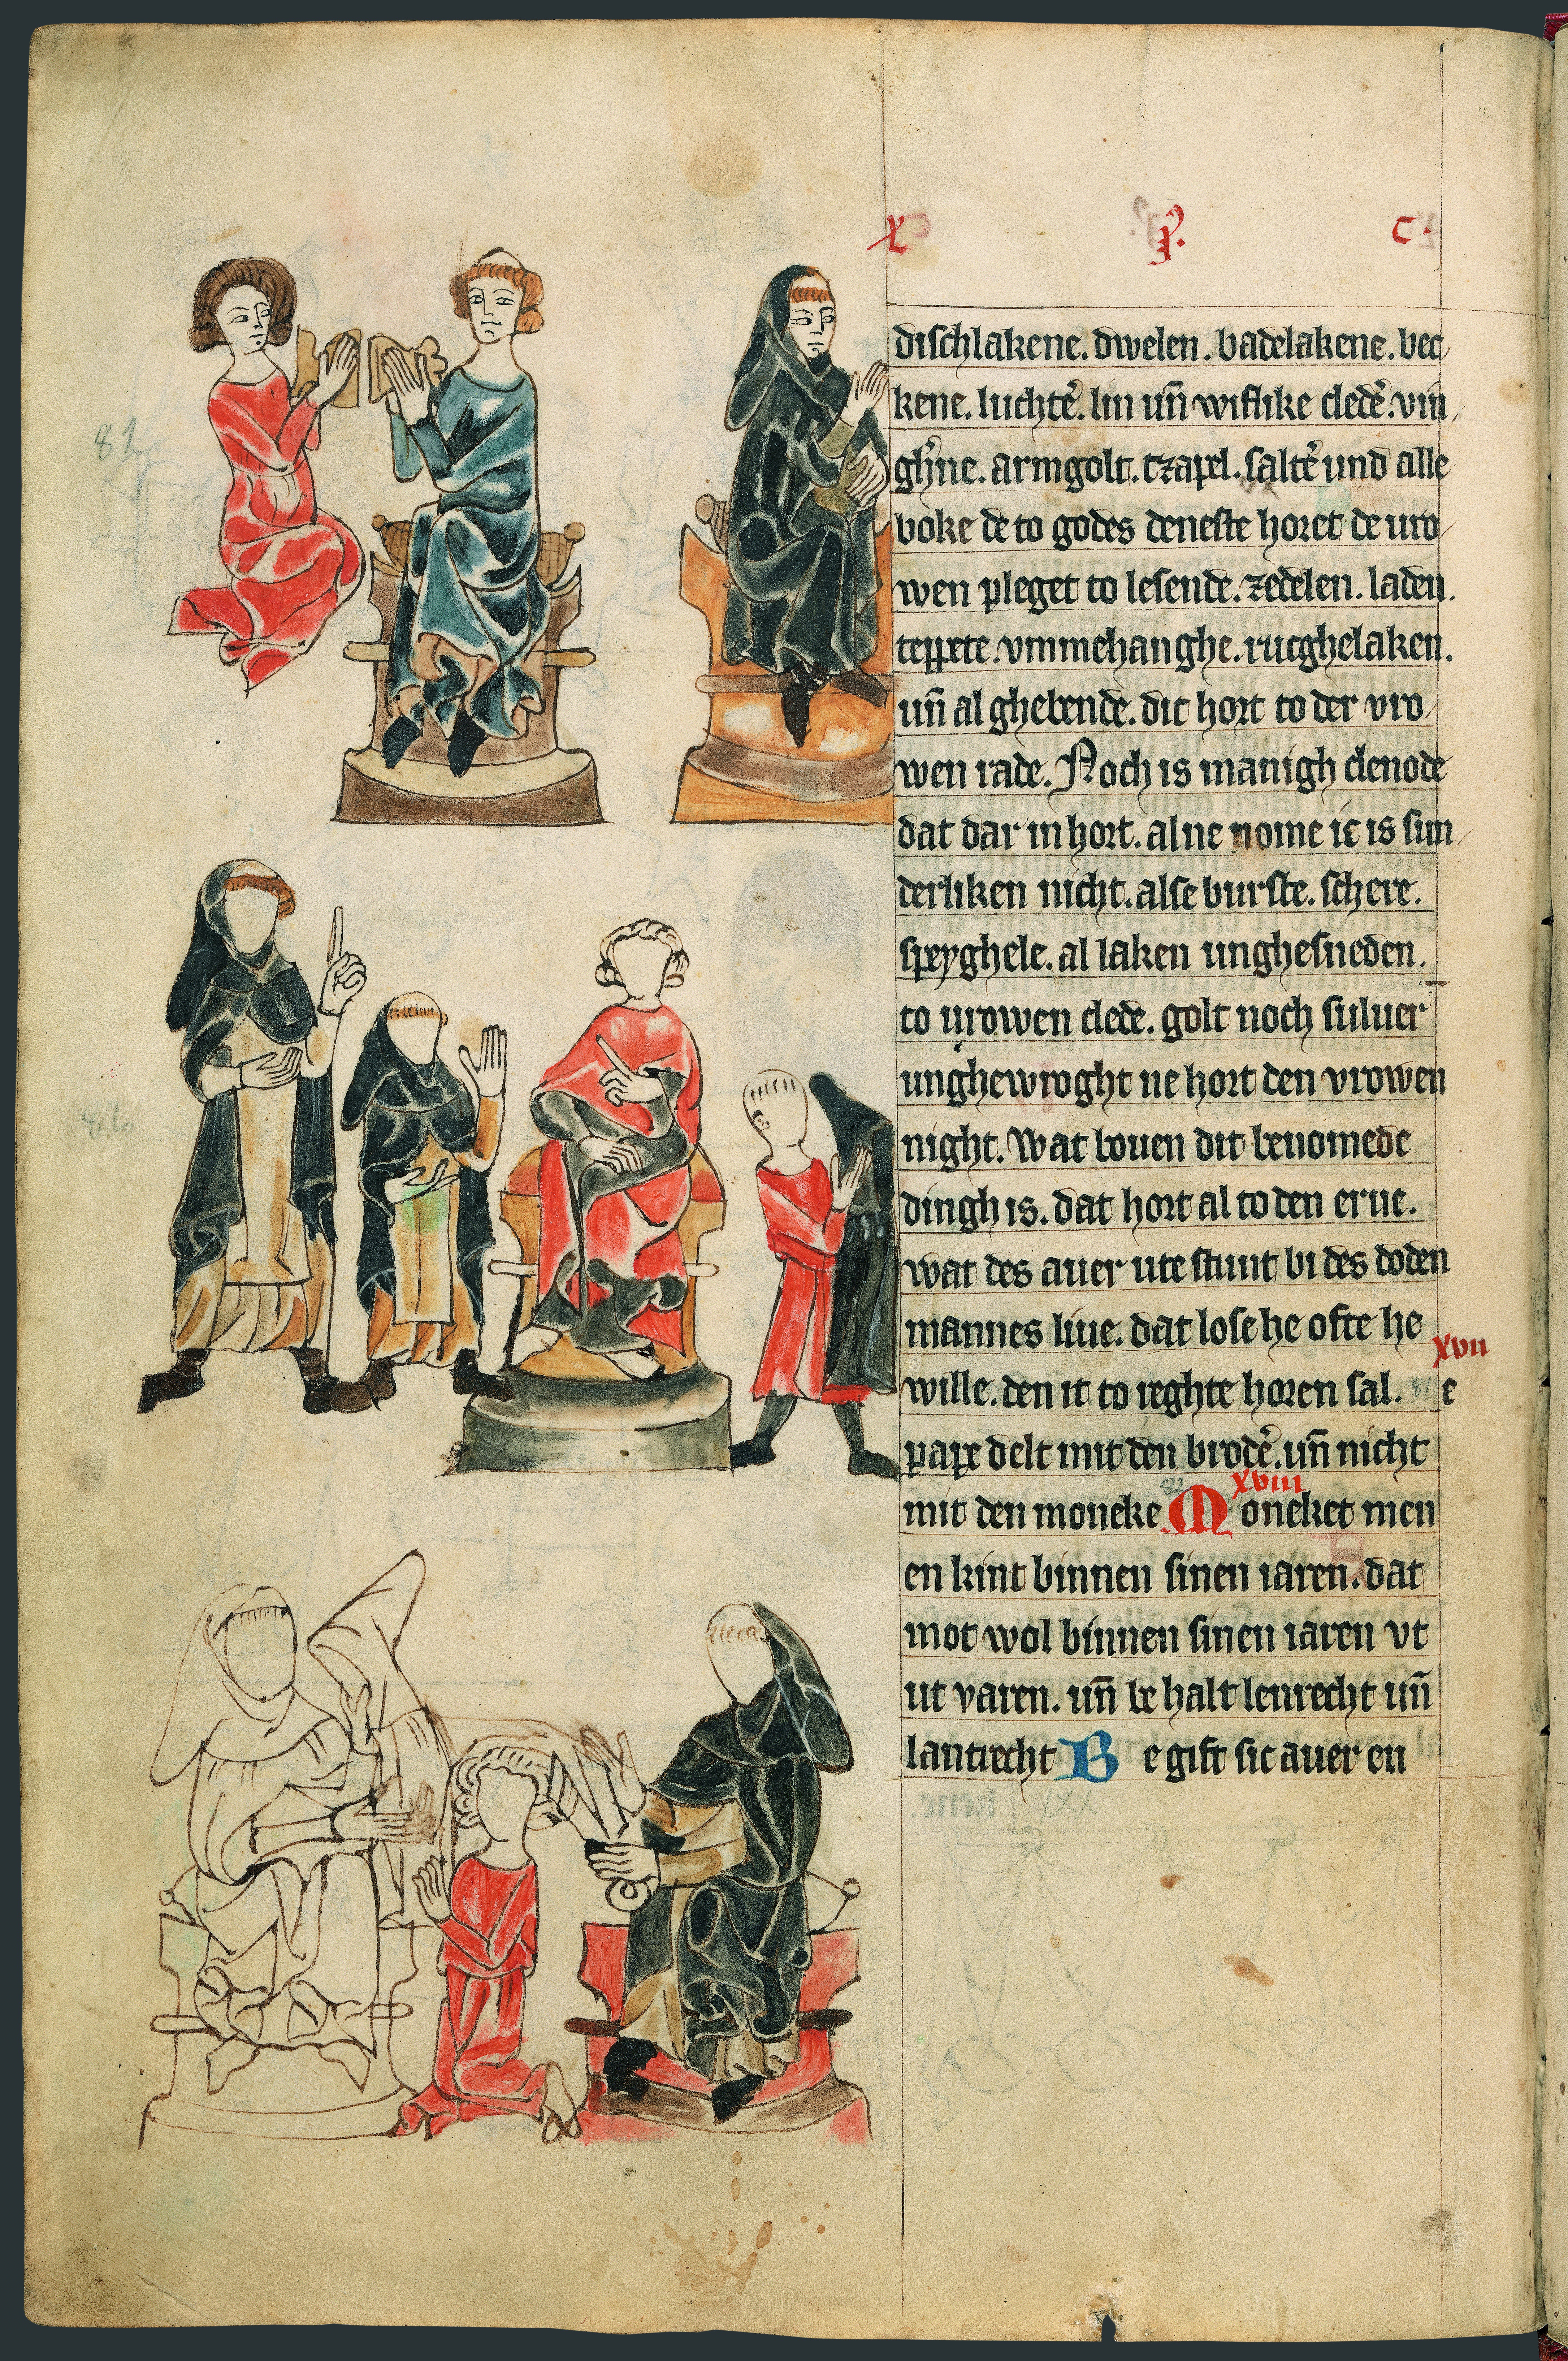 X I. C.
dischlakene. dwelen. badelakene. bec
kene. luchtē. lin uñ wiflike cledē. vin
ghrne. armgolt. tzapel. saltē und alle
boke de to godes deneste horet de uro
wen pleget to lesende. zedelen. laden.
teppete. vmmehanghe. rucghelaken.
uñ al ghebende. dit hort to der vro
wen rade. Noch is manigh clenode
dat dar in hort. al ne nome ic is sun
derliken nicht. alse burste. schere.
speyghele. al laken unghesneden.
to urowen clede. golt noch suluer
unghewroght ne hort den vrowen
night. Wat bouen dit benomede
dingh is. dat hort al to den erue.
wat des auer ute stunt bi des doden
mannes liue. dat lose he ofte he
xvii
wille. den it to reghte horen sal. 81 e
pape delt mit den brodē. uñ nicht
xviii
mit den moneke 82 Moneket men
en kint binnen sinen iaren. dat
mot wol binnen sinen iaren vt
ut varen. uñ be halt lenrecht uñ
lantrecht Be gift sic auer en
81
82